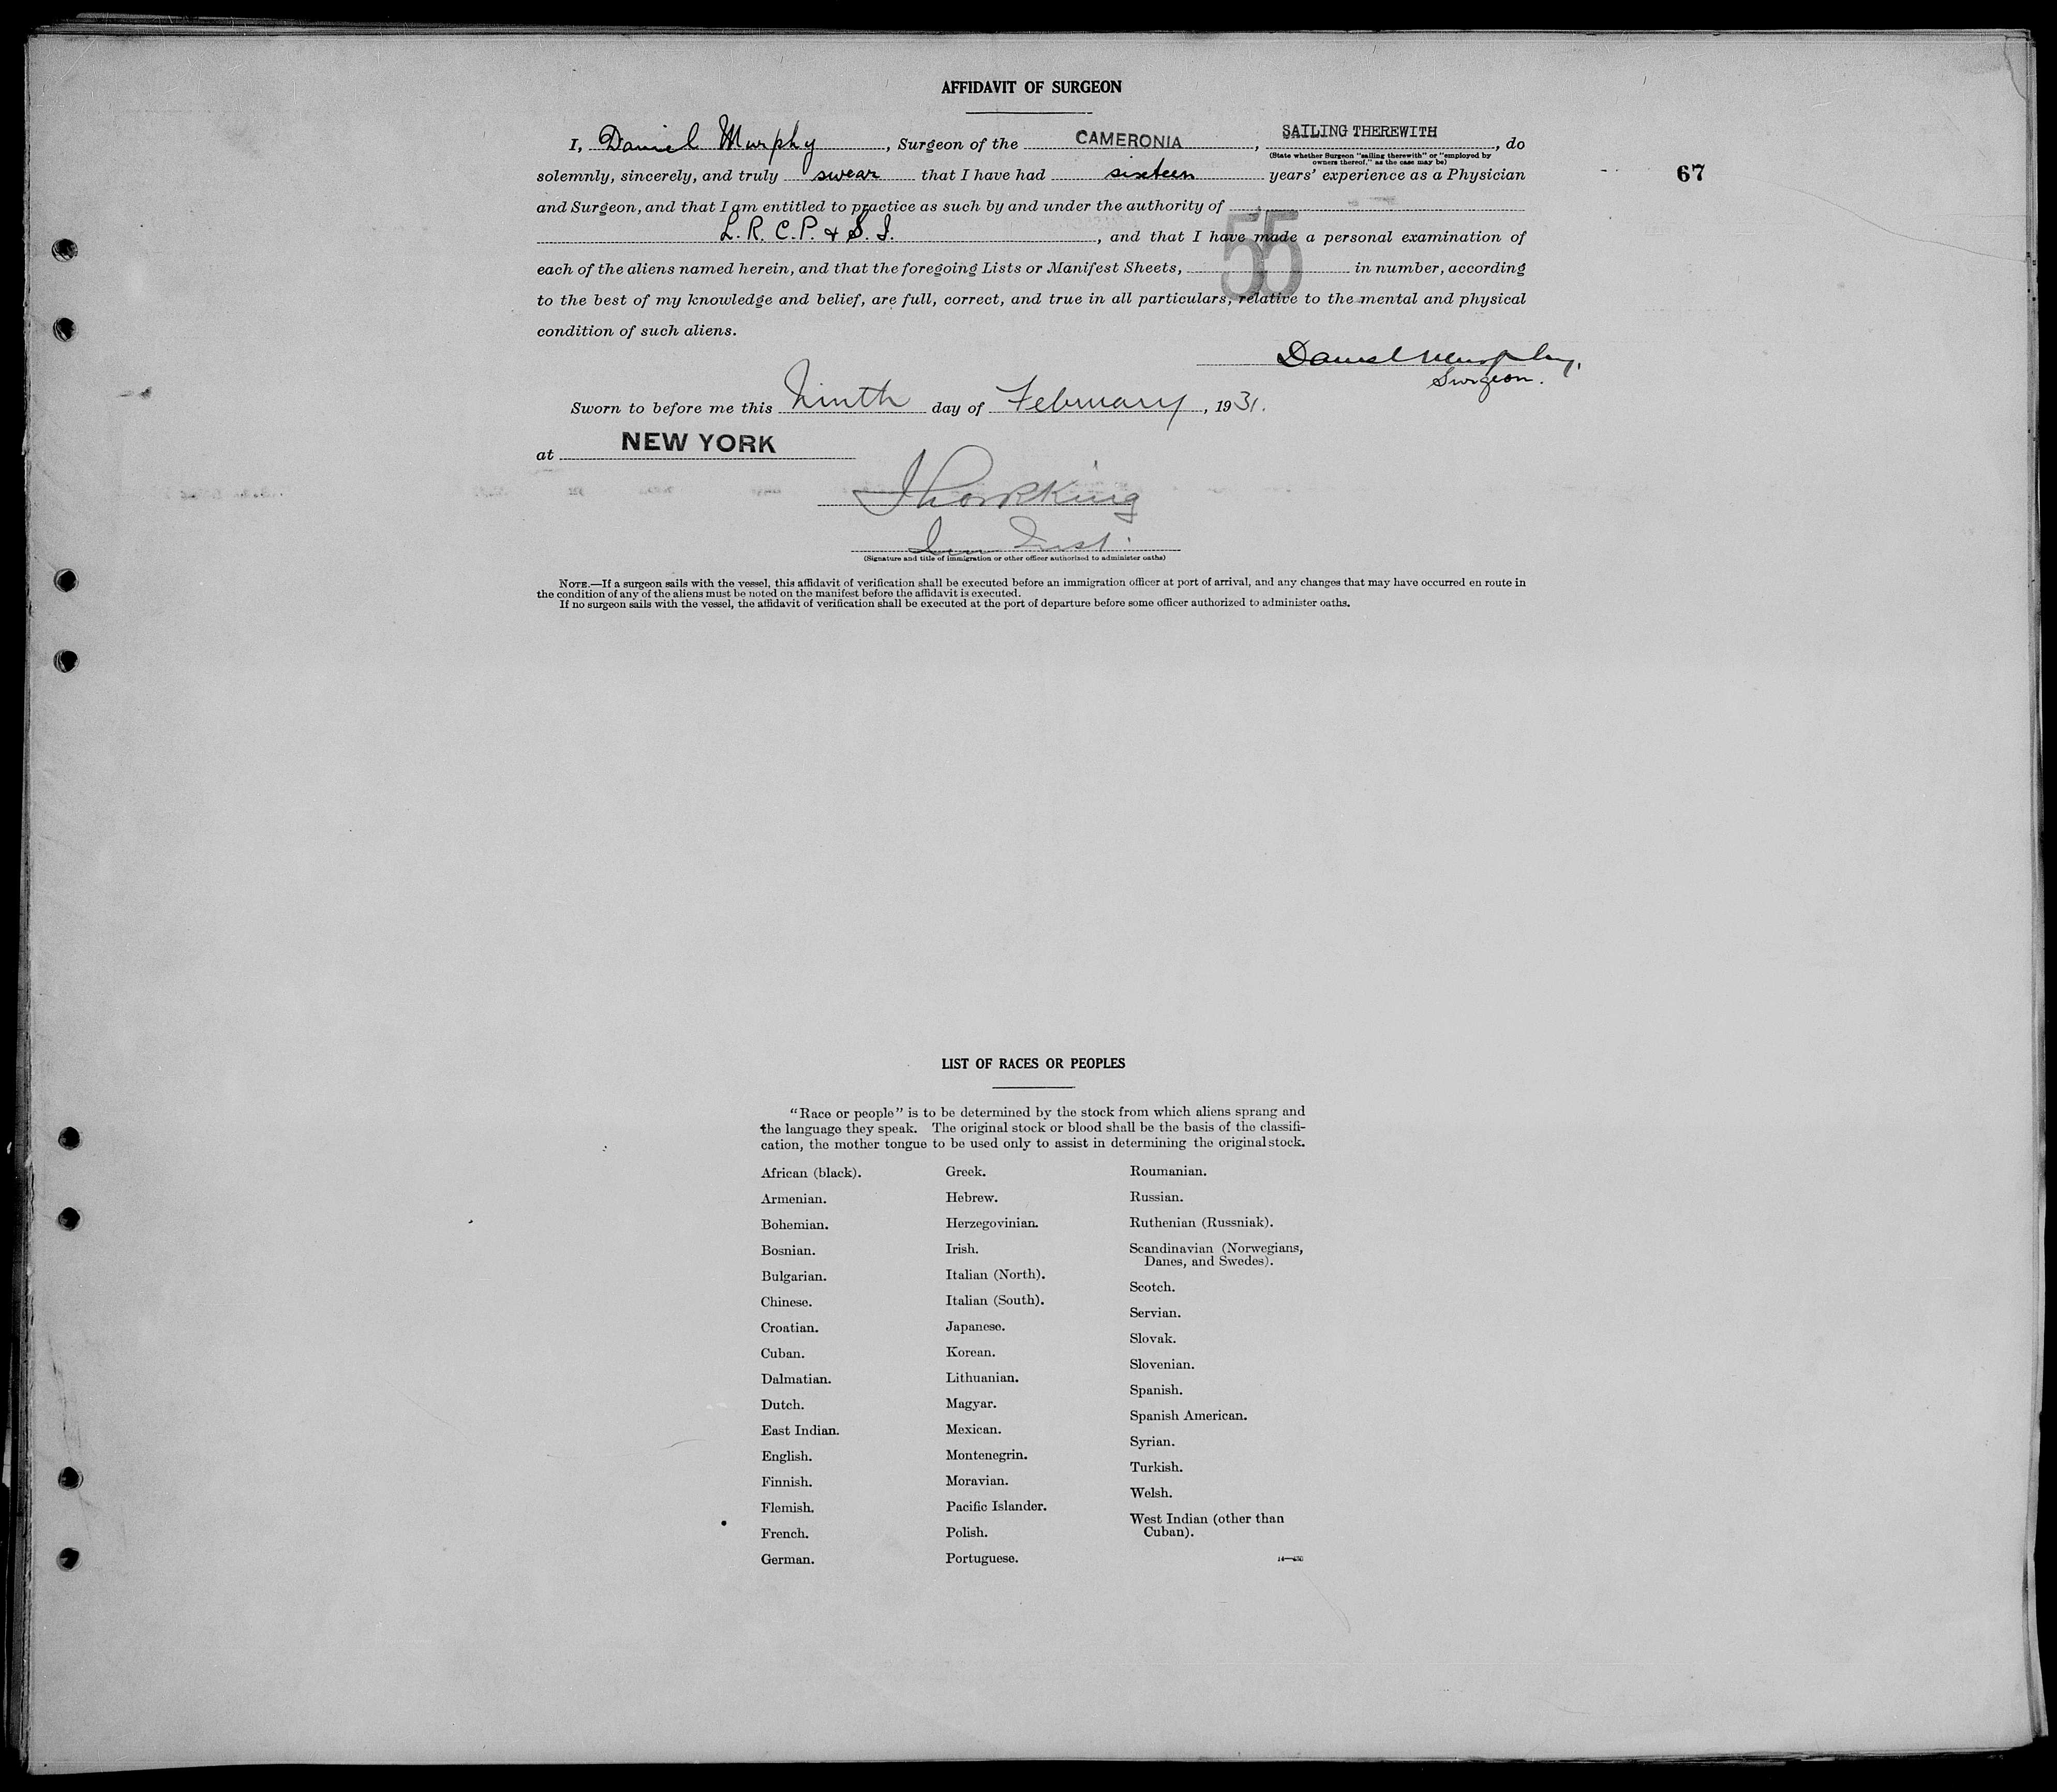 AFFIDAVIT OF SURGEON
I, Daniel Murphy, Surgeon of the CAMERONIA, SAILING THEREWITH, do
(State whether Surgeon "sailing therewith" or "employed by
owners thereof," as the case may be)
solemnly, sincerely, and truly swear that I have had sixteen years' experience as a Physician
67
and Surgeon, and that I am entitled to practice as such by and under the authority of
L. R. C. P. & S. I., and that I have made a personal examination of
55
each of the aliens named herein, and that the foregoing Lists or Manifest Sheets, in number, according
to the best of my knowledge and belief, are full, correct, and true in all particulars, relative to the mental and physical
condition of such aliens.
Daniel Murphy,
Surgeon.
Sworn to before me this Ninth day of February, 1931.
at NEW YORK
(Signature and title of immigration or other officer authorized to administer oaths)
NOTE.—If a surgeon sails with the vessel, this affidavit of verification shall be executed before an immigration officer at port of arrival, and any changes that may have occurred en route in
the condition of any of the aliens must be noted on the manifest before the affidavit is executed.
If no surgeon sails with the vessel, the affidavit of verification shall be executed at the port of departure before some officer authorized to administer oaths.
LIST OF RACES OR PEOPLES
"Race or people" is to be determined by the stock from which aliens sprang and
the language they speak. The original stock or blood shall be the basis of the classifi-
cation, the mother tongue to be used only to assist in determining the original stock.
African (black).
Armenian.
Bohemian.
Bosnian.
Bulgarian.
Chinese.
Croatian.
Cuban.
Dalmatian.
Dutch.
East Indian.
English.
Finnish.
Flemish.
French.
German.
Greek.
Hebrew.
Herzegovinian.
Irish.
Italian (North).
Italian (South).
Japanese.
Korean.
Lithuanian.
Magyar.
Mexican.
Montenegrin.
Moravian.
Pacific Islander.
Polish.
Portuguese.
Roumanian.
Russian.
Ruthenian (Russniak).
Scandinavian (Norwegians,
Danes, and Swedes).
Scotch.
Servian.
Slovak.
Slovenian.
Spanish.
Spanish American.
Syrian.
Turkish.
Welsh.
West Indian (other than
Cuban).